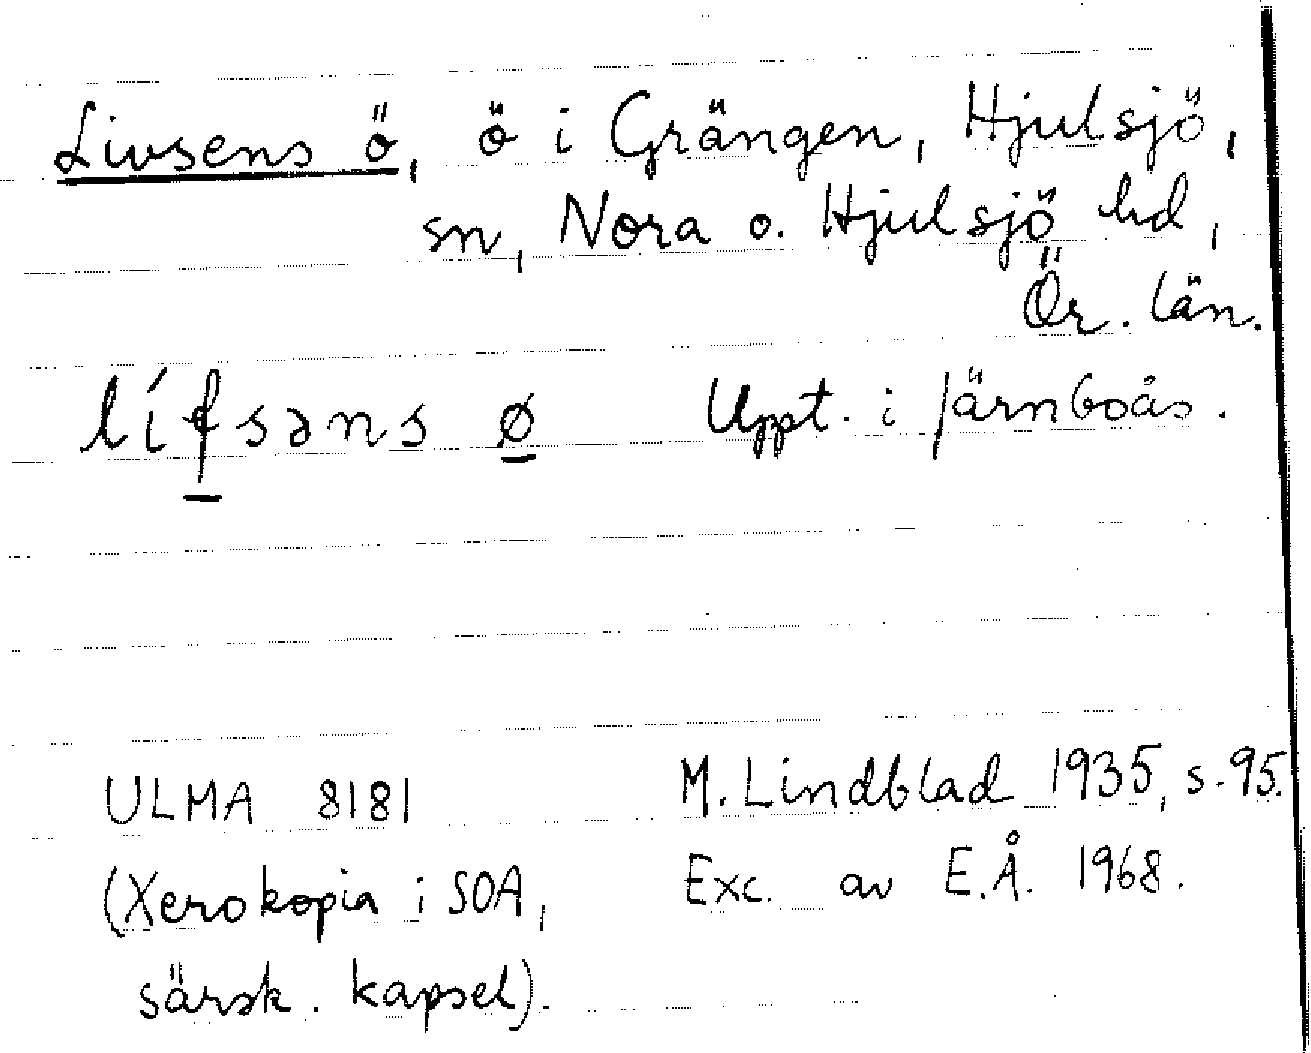 Livsens ö, ö i Grängen, Hjulsjö,
sn, Nora o. Hjulsjö hd,
Ör. län.
lífsəns ø Uppt. i Järnboås.
ULMA 8181 M. Lindblad 1935, s. 95.
(Xerokopia i SOA, Exc. av E.Å. 1968.
särsk. kapsel).